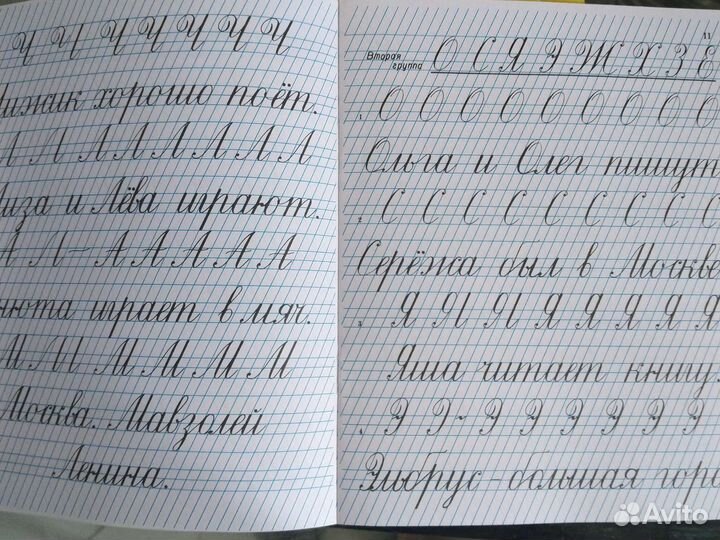 Ч Ч Ч Ч Ч Ч Ч
Чижик хорошо поёт.
Л Л Л Л Л Л Л
Лиза и Лёва играют.
А Л — А А А А А
Анюта играет в мяч.
М М М М М М
Москва. Мавзолей
Ленина.
11
Вторая группа О С Я Э Ж Х З Е
О О О О О О О О О
Ольга и Олег пишут
С С С С С С С С С
Серёжа был в Москве
Я Я Я Я Я Я Я Я
Яша читает книгу.
Э Э ~ Э Э Э Э Э Э
Эльбрус – большая гора
Avito